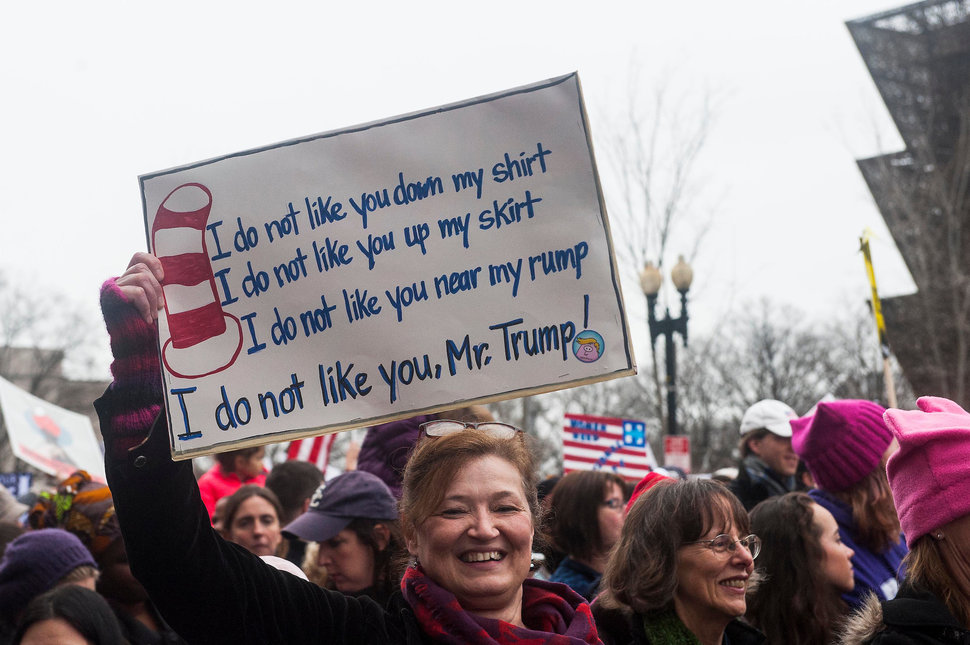 I do not like you down my shirt
I do not like you up my skirt
I do not like you near my rump
I do not like you, Mr. Trump!